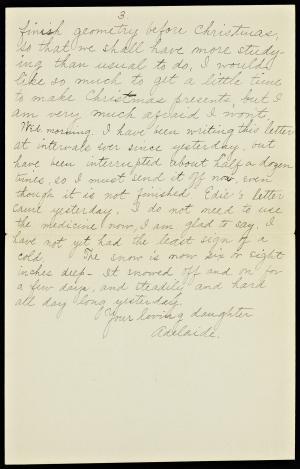 3
finish geometry before Christmas,
so that we shall have more study-
ing than usual to do. I would
like so much to get a little time
to make Christmas presents, but I
am very much afraid I won't.
Wed. morning. I have been writing this letter
at intervals ever since yesterday, but
have been interrupted about half a dozen
times, so I must send it off now even
though it is not finished. Edie's letter
came yesterday. I do not need to use
the medicine now, I am glad to say. I
have not yet had the least sign of a
cold. The snow is now six or eight
inches deep - It snowed off and on for
a few days, and steadily and hard
all day long yesterday.
Your loving daughter
Adelaide.